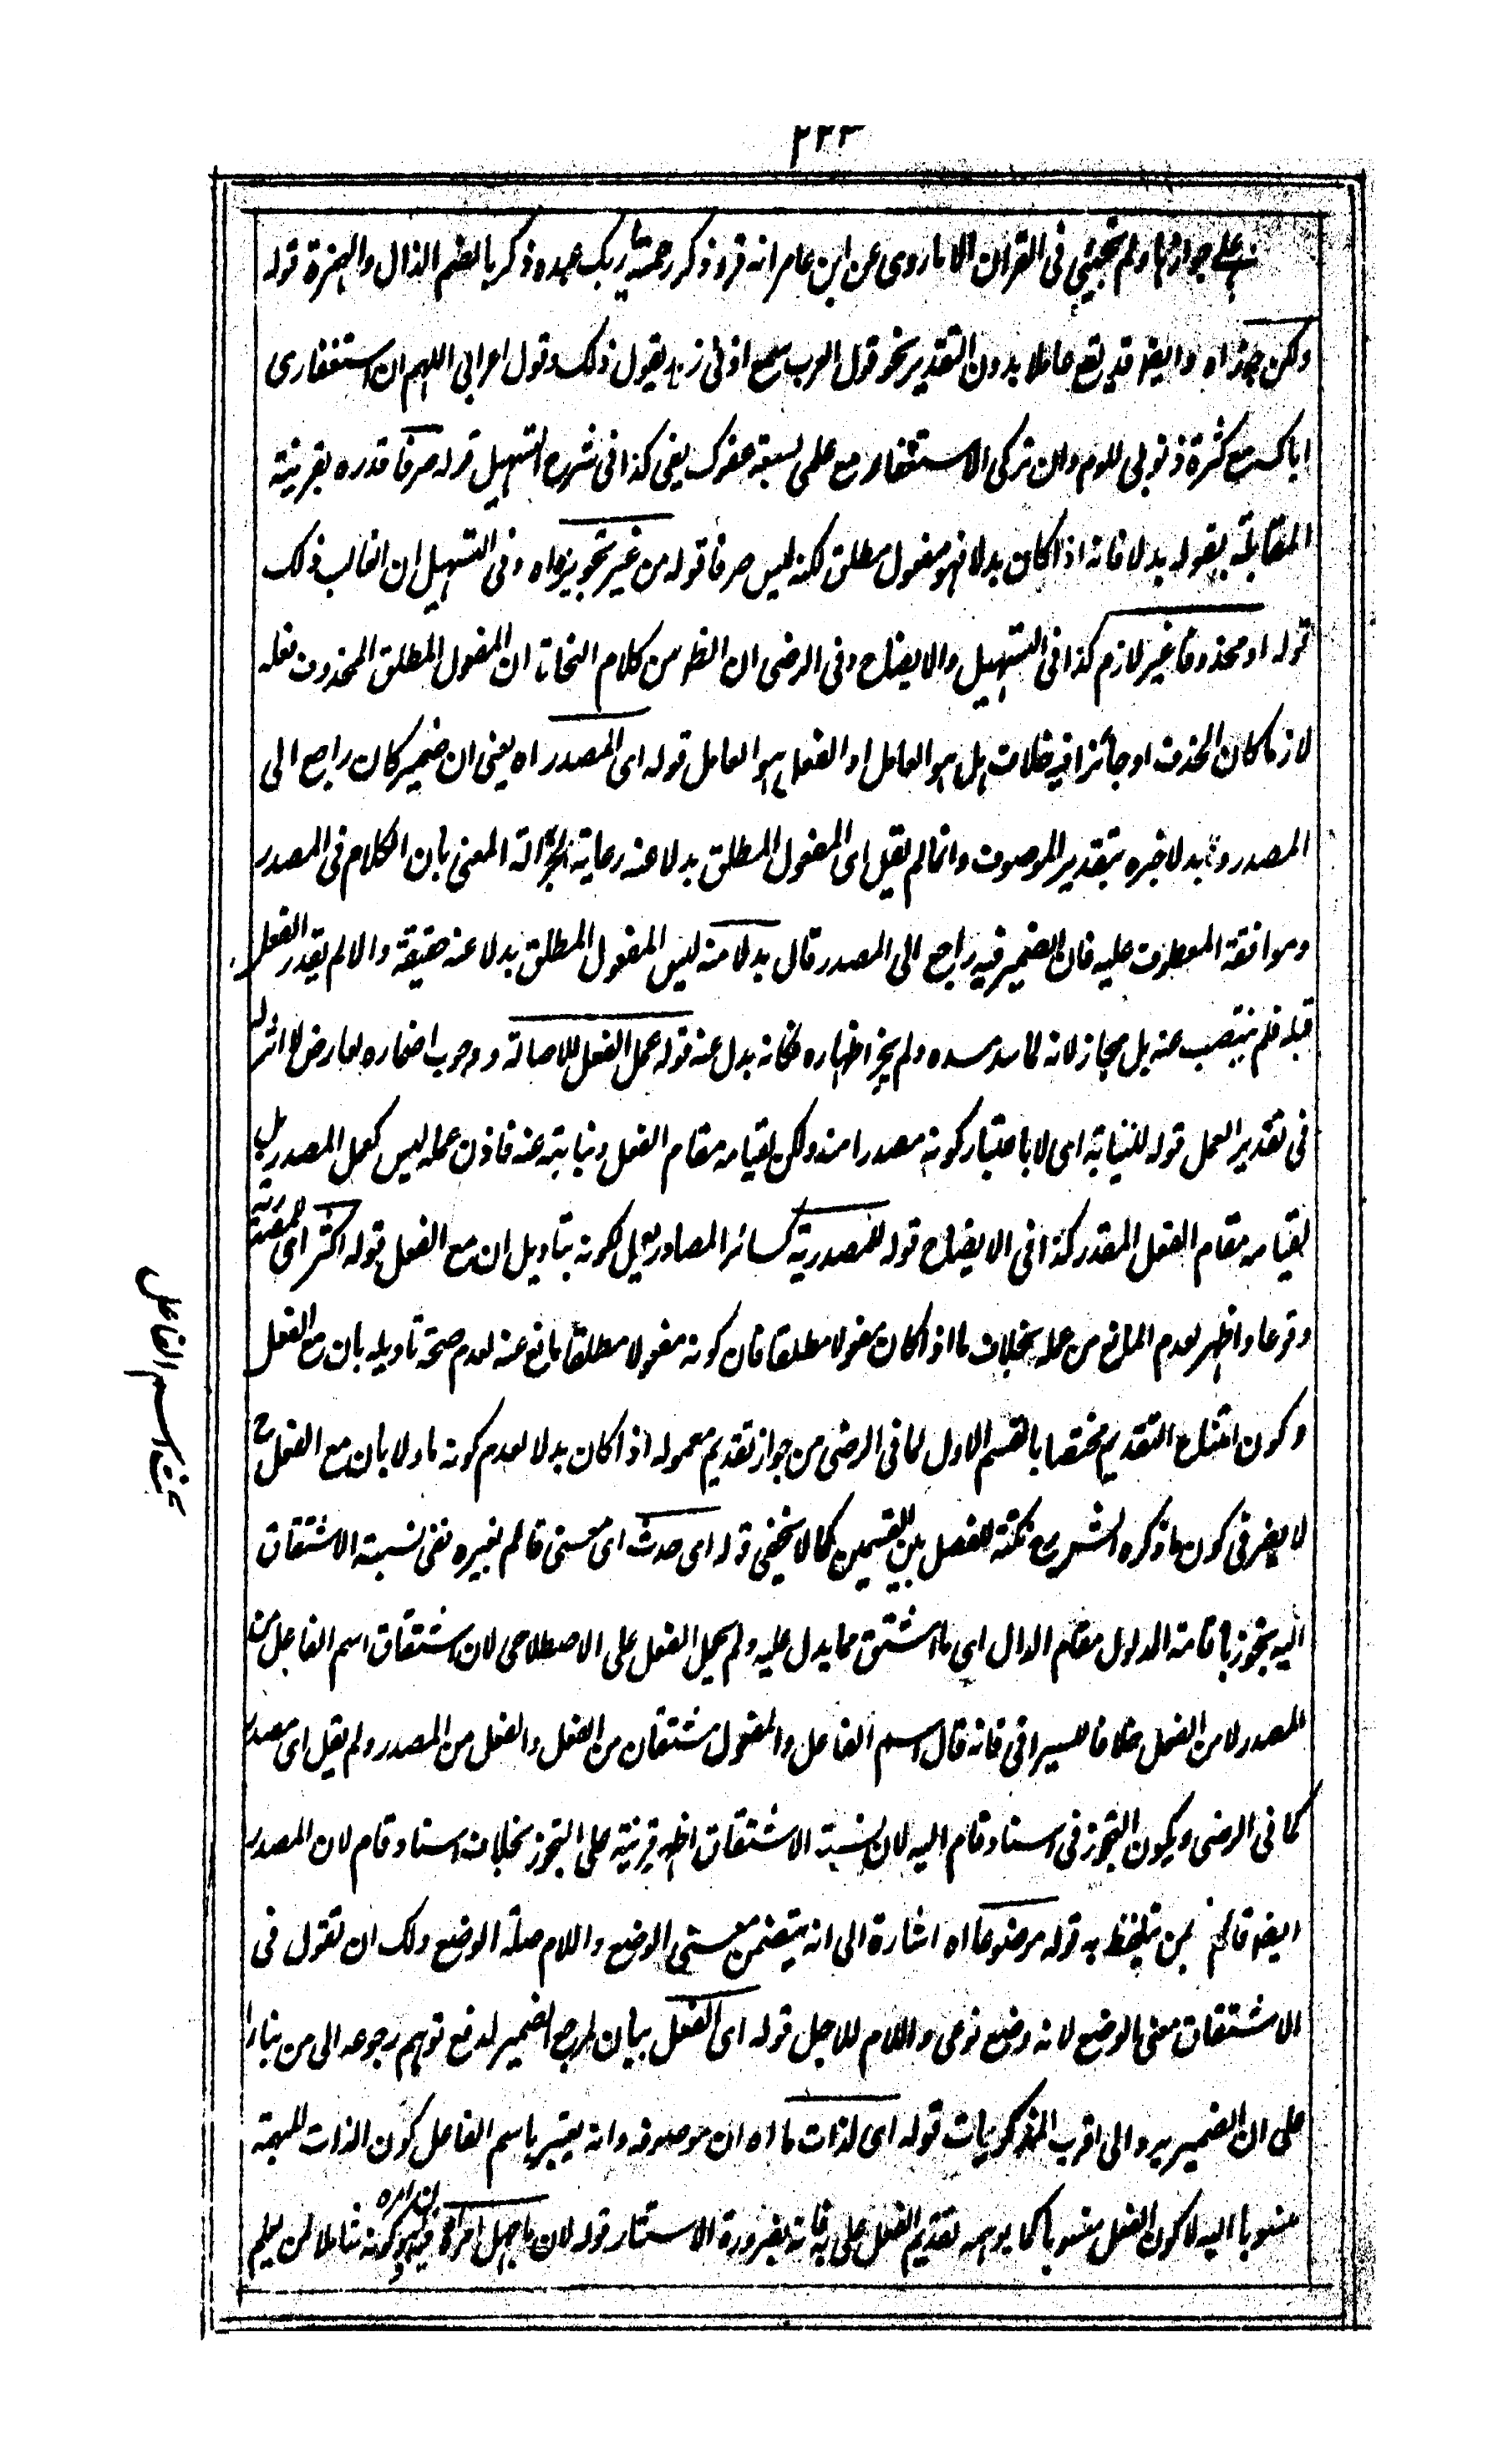 ٢٣٣
على جوازها ولم تجيئ فى القران الا ما روى عن ابن عامر انه قرء ذكر رحمة ربك عبده ذكريا بضم الذال والهمزة قوله
ولكن جوزاه وايضا قد يقع عاملا بدون التقدير نحو قول العرب سمع اذنى زيدا يقول ذلك وقول اعرابى اللهم ان استغفارى
اياك مع كثرة ذنوبى للوم وان تركى الاستغفار مع علمى بسعة عفوك لعى كذا فى شرح التسهيل قوله صرفا قدره بقرينة
المقابلة بقوله بدلا فانه اذا كان بدلا فهو مفعول مطلق لكنه ليس صرفا قوله من غير تجويز اه وفى التسهيل ان الغالب ذلك
قوله او محذوفا غير لازم كذا فى التسهيل والايضاح وفى الرضى ان الظ من كلام النحاة ان المفعول المطلق المحذوف فعله
لازما كان الحذف او جائزا فيه خلاف هل هو العامل او الفعل هو العامل قوله اى المصدر اه يعنى ان ضمير كان راجع الى
المصدر وبدلا خبره بتقدير الموصوف وانما لم يقل اى المفعول المطلق بدلا عنه رعاية لجزالة المعنى بان الكلام فى المصدر
وموافقة المعطوف عليه فان الضمير فيه راجع الى المصدر قال بدلا منه ليس المفعول المطلق بدلا عنه حقيقة والا لم يقدر الفعل
قبله فلم ينتصب عنه بل مجاز لانه لما سد مسده ولم يجز اظهاره فكانه بدل عنه قوله عمل الفعل للاصالة ووجوب اضماره لعارض لا اثر له
فى تقدير العمل قوله للنيابة اى لا باعتبار كونه مصدرا منه ولكن لقيامه مقام الفعل ونيابته عنه فاذن عمله ليس كعمل المصدر بل
لقيامه مقام الفعل المقدر كذا فى الايضاح قوله للمصدرية كسائر المصادر يعمل لكونه بتاويل ان مع الفعل قوله اكثر اى
وقوعا واظهر لعدم المانع من عمله بخلاف ما اذا كان مفعولا مطلقا فان كونه مفعولا مطلقا مانع عنه لعدم صحة تاويله بان مع الفعل
وكون امتناع التقديم مختصا بالقسم الاول لما فى الرضى من جواز تقديم معموله اذا كان بدلا لعدم كونه ماولا بان مع الفعل ح
لا يضر فى كون ما ذكره الشرح نكتة للفصل بين القسمين كما لا يخفى قوله اى حدث اى معنى قائم بغيره نفى نسبة الاشتقاق
اليه تجوز باقامة المدلول مقام الدال اى ما اشتق مما يدل عليه ولم يحمل الفعل على الاصطلاحى لان اشتقاق اسم الفاعل من
المصدر لا من الفعل خلافا للسيرافى فانه قال اسم الفاعل والمفعول مشتقان من الفعل والفعل من المصدر ولم يقل اى مصدر
كما فى الرضى ويكون التجوز فى اسناد قام اليه لان نسبة الاشتقاق اظهر قرينة على التجوز بخلاف اسناد قام لان المصدر
ايضا قائم بمن يتلفظ به قوله موضوعا اه اشارة الى انه يتضمن معنى الوضع واللام صلة الوضع ولك ان تقول فى
الاشتقاق معنى الوضع لانه وضع نوعى واللام للاجل قوله اى الفعل بيان لمرجع الضمير لدفع توهم رجوعه الى من بناء
على ان الضمير يرد الى اقرب المذكورات قوله اى لذات ما اه ان موصوفه وانه يعتبر باسم الفاعل كون الذات المبهمة
منسوبا اليه لا كون الفعل منسوبا كما يوهمه تقديم الفعل على فانه بضرورة الاستتار قوله لان ما جهل امره كونه شاملا لمن يعلم
نحن اسم الفاعل